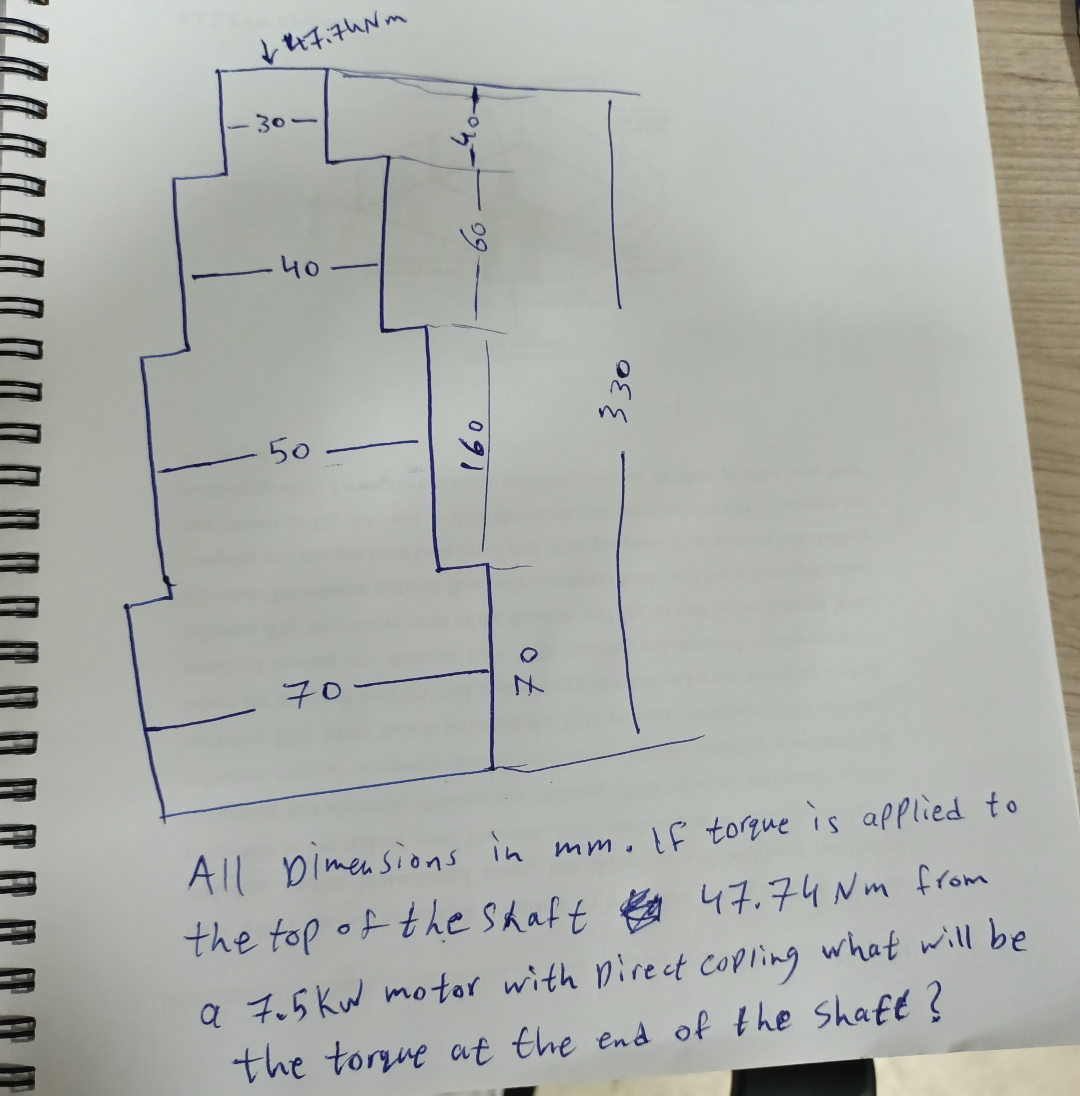 ↓ 47.74Nm
30
40
40
60
50
160
330
70
70
All Dimensions in mm. If torque is applied to
the top of the shaft 47.74 Nm from
a 7.5 Kw motor with Direct copling what will be
the torque at the end of the shaft?